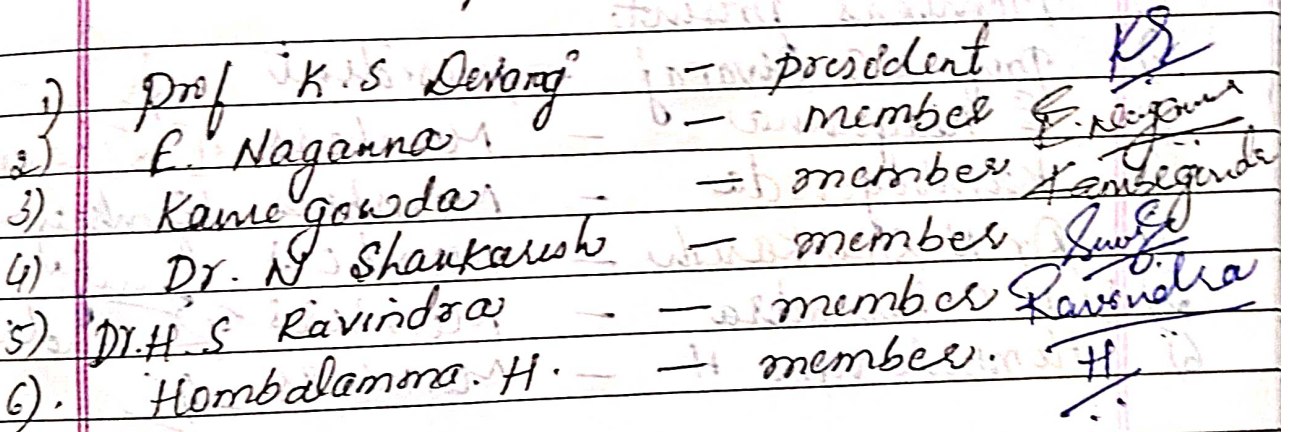 1) Prof K.S Devaraj - president KS
2) E. Naganna - member E. Naganna
3) Kame gowda - member Kembegowda
4) Dr. N Shankaresh - member
5) Dr. H. S Ravindra - member Ravindra
6). Hombalamma. H. - member. H